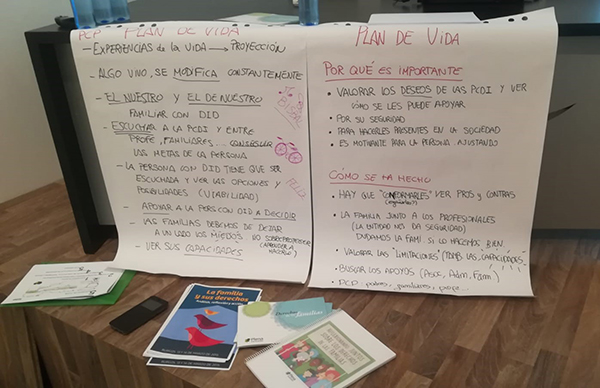 PCP PLAN DE VIDA
- EXPERIENCIAS de la VIDA → PROYECCIÓN
- ALGO UNO, SE MODIFICA CONSTANTEMENTE
- EL NUESTRO Y EL DE NUESTRO
FAMILIAR CON DID
- ESCUCHAR A LA PCDI Y ENTRE
PROFE, FAMILIARES...
LAS METAS DE LA PERSONA
- LA PERSONA CON DID TIENE QUE SER
ESCUCHADA Y VER LAS OPCIONES Y
POSIBILIDADES (VIABILIDAD)
- APOYAR A LA PERS CON DID A DECIDIR
- LAS FAMILIAS DEBEMOS DE DEJAR
A UN LADO LOS MIEDOS. NO SOBREPROTEGER
(APRENDER A
HACERLO)
- VER SUS CAPACIDADES
PLAN DE VIDA
POR QUÉ ES IMPORTANTE
• VALORAR LOS DESEOS DE LAS PCDI Y VER
CÓMO SE LES PUEDE APOYAR
• POR SU SEGURIDAD
• PARA HACERLES PRESENTES EN LA SOCIEDAD
• ES MOTIVANTE PARA LA PERSONA. AJUSTANDO
CÓMO SE HA HECHO
• HAY QUE "CONFORMARLES" VER PROS y CONTRAS
• LA FAMILIA JUNTO A LOS PROFESIONALES
(LA ENTIDAD NOS DA SEGURIDAD)
DUDAMOS LA FAMI. SI LO HACEMOS BIEN.
• VALORAR LAS LIMITACIONES (TAMB LAS CAPACIDADES)
• BUSCAR LOS APOYOS (Asoc, Adm, Fam)
• PCP padres, familiares, profe...
La familia
y sus derechos